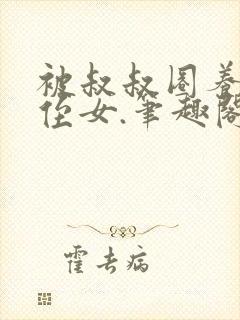 被叔叔圈养
侄女.笔趣阁
霍去病